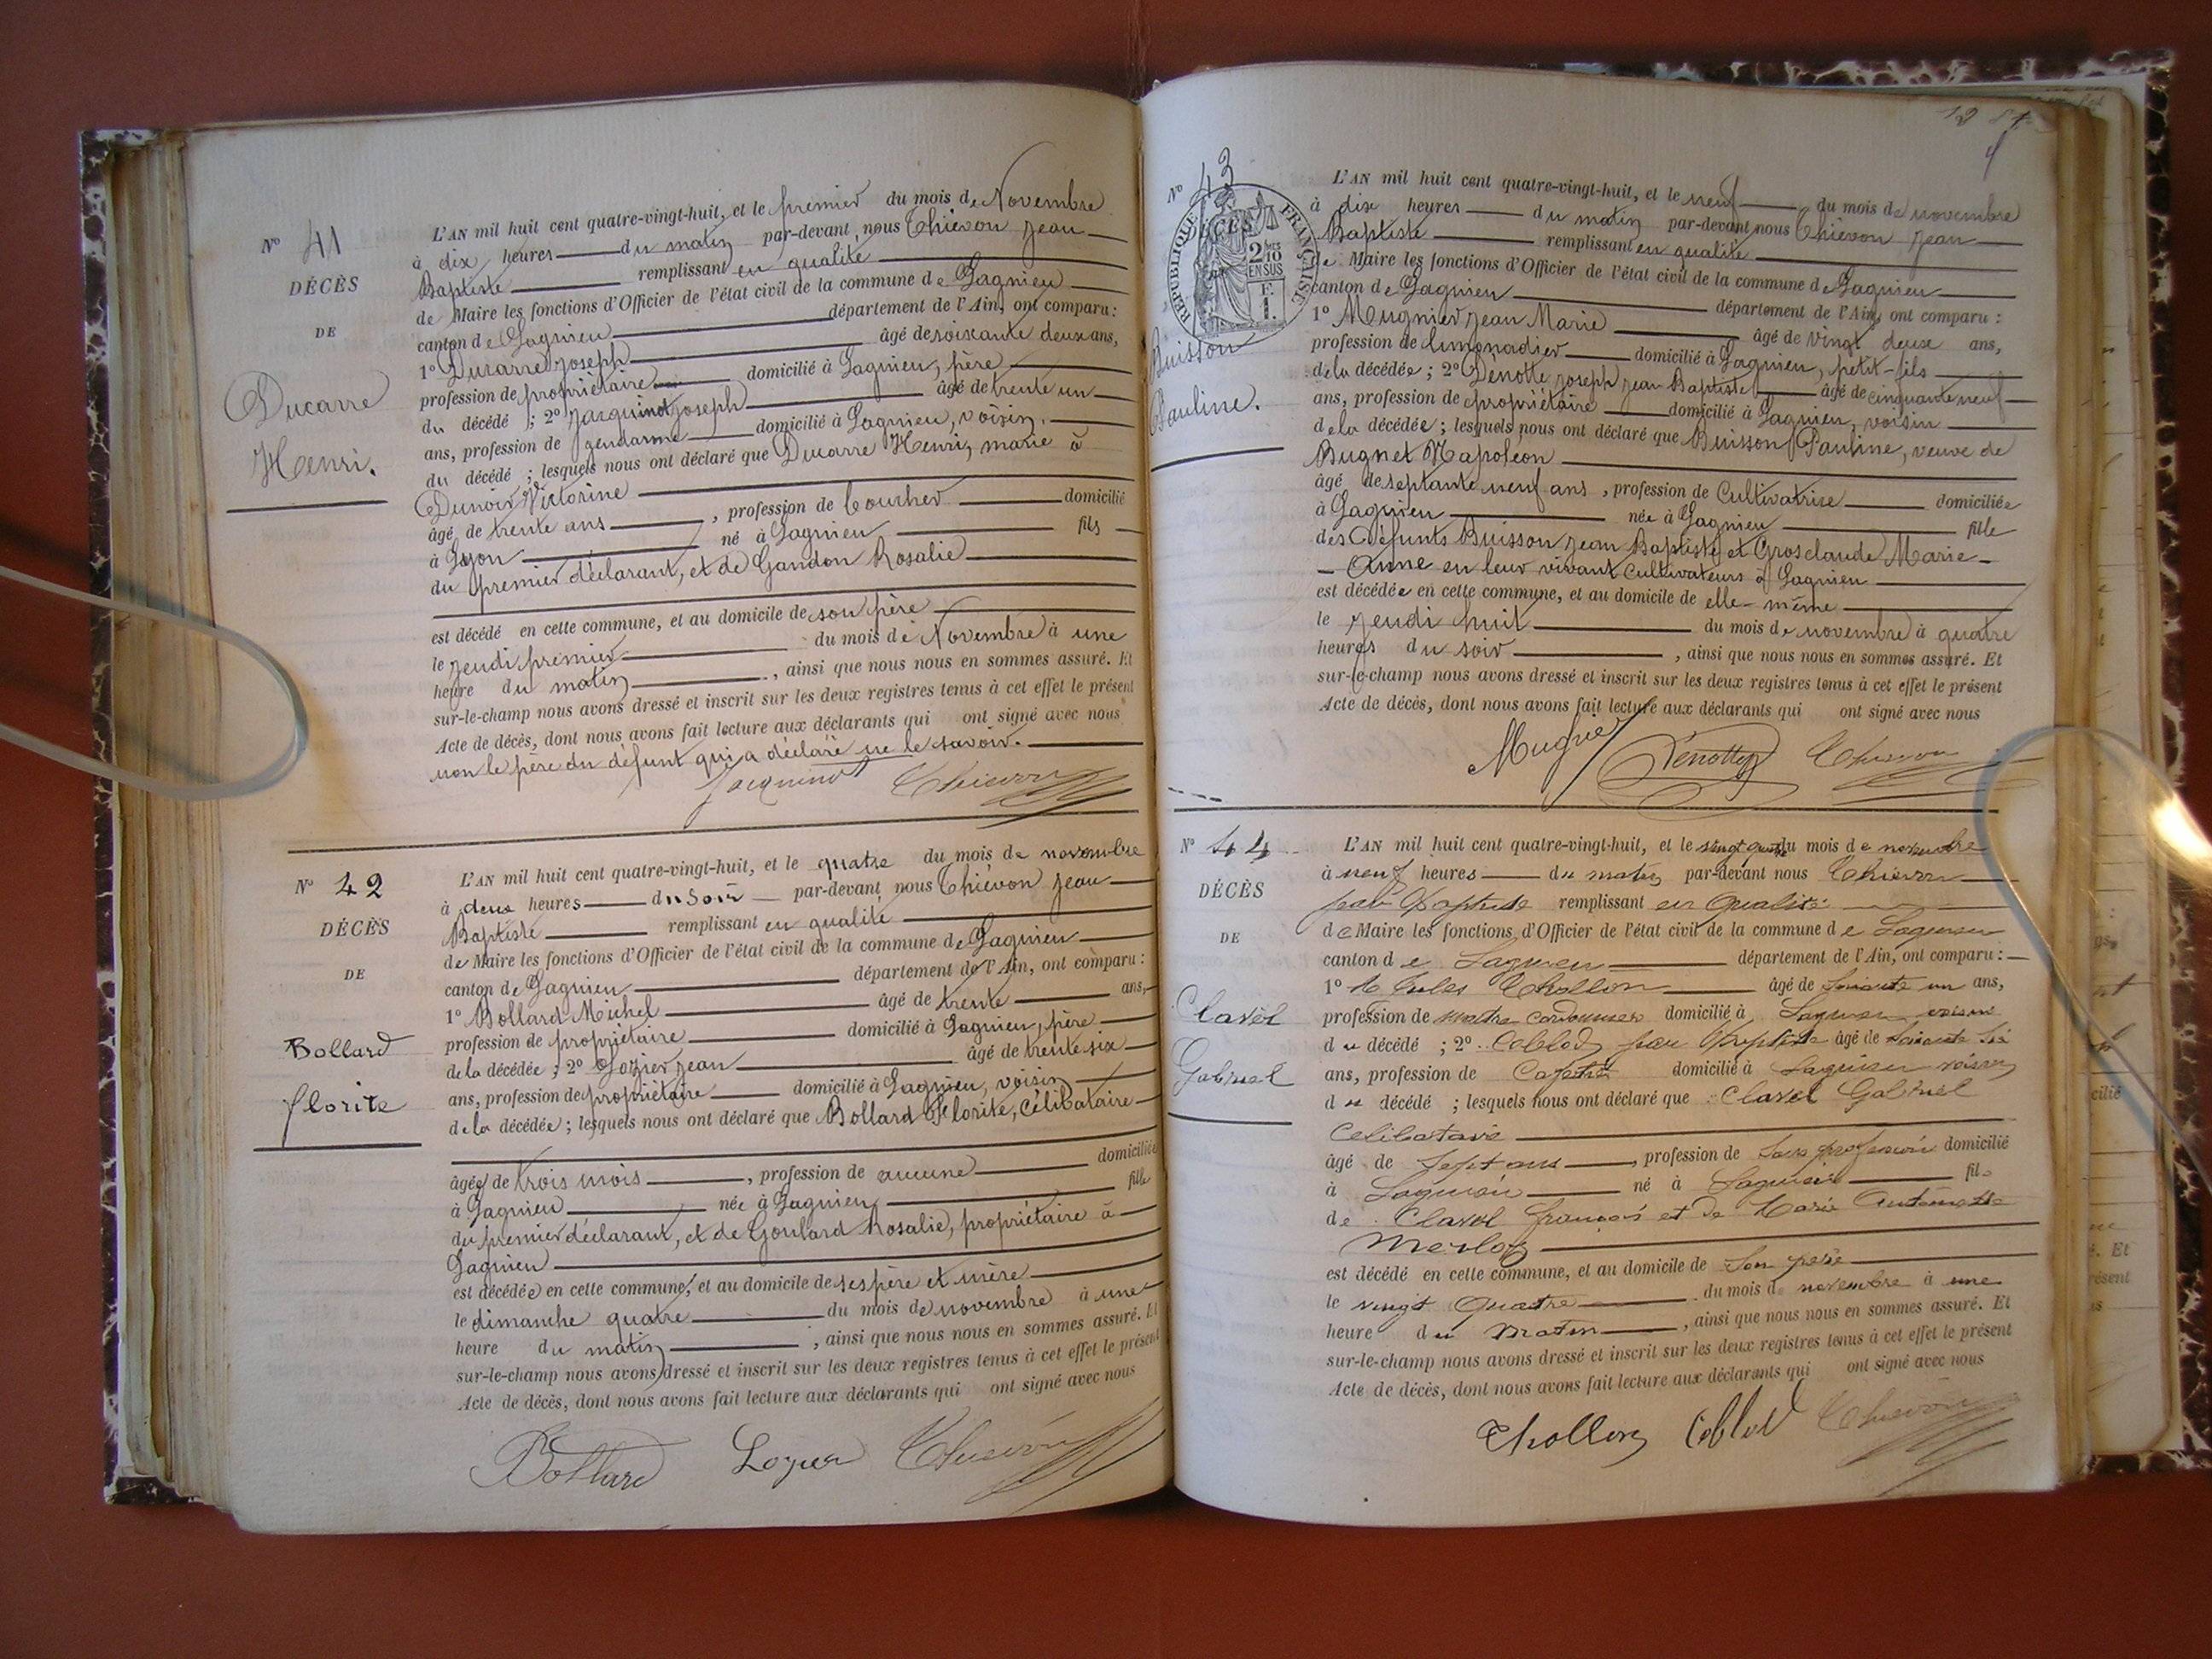 N° 41
DÉCÈS
DE
Ducarre
Henri.
L'AN mil huit cent quatre-vingt-huit, et le premier du mois de Novembre
à dix heures du matin par-devant nous Thiévon Jean
Baptiste remplissant en qualité
de Maire les fonctions d'Officier de l'état civil de la commune de Lagnieu
canton de Lagnieu département de l'Ain, ont comparu :
1° Ducarre Joseph âgé de soixante deux ans,
profession de propriétaire domicilié à Lagnieu, père
du décédé ; 2° Jacquinot Joseph âgé de trente un
ans, profession de gendarme domicilié à Lagnieu, voisin.
du décédé ; lesquels nous ont déclaré que Ducarre Henri, marié à
Dunoir Victorine
âgé de trente ans , profession de boucher domicilié
à Lyon né à Lagnieu fils
du premier déclarant, et de Gandon Rosalie
est décédé en cette commune, et au domicile de son père
le jeudi premier du mois de Novembre à une
heure du matin , ainsi que nous nous en sommes assuré. Et
sur-le-champ nous avons dressé et inscrit sur les deux registres tenus à cet effet le présent
Acte de décès, dont nous avons fait lecture aux déclarants qui ont signé avec nous
non le père du défunt qui a déclaré ne le savoir.
Jacquinot Thiévon
N° 42
DÉCÈS
DE
Bollard
florite
L'AN mil huit cent quatre-vingt-huit, et le quatre du mois de novembre
à deux heures du soir par-devant nous Thiévon Jean
Baptiste remplissant en qualité
de Maire les fonctions d'Officier de l'état civil de la commune de Lagnieu
canton de Lagnieu département de l'Ain, ont comparu :
1° Bollard Michel âgé de trente ans,
profession de propriétaire domicilié à Lagnieu, père
de la décédée ; 2° Lozier Jean âgé de trente six
ans, profession de propriétaire domicilié à Lagnieu, voisin
de la décédée ; lesquels nous ont déclaré que Bollard Florite, Célibataire
âgée de trois mois , profession de aucune domiciliée
à Lagnieu née à Lagnieu fille
du premier déclarant, et de Goulard Rosalie, propriétaire à
Lagnieu
est décédée en cette commune, et au domicile de ses père et mère
le dimanche quatre du mois de novembre à une
heure du matin , ainsi que nous nous en sommes assuré. Et
sur-le-champ nous avons dressé et inscrit sur les deux registres tenus à cet effet le présent
Acte de décès, dont nous avons fait lecture aux déclarants qui ont signé avec nous
Bollard Thiévon
N° 43
RÉPUBLIQUE FRANÇAISE
2/10
EN SUS
F.
1.
Buisson
Pauline.
L'AN mil huit cent quatre-vingt-huit, et le neuf du mois de novembre
à dix heures du matin par-devant nous Thiévon Jean
Baptiste remplissant en qualité
de Maire les fonctions d'Officier de l'état civil de la commune de Lagnieu
canton de Lagnieu département de l'Ain, ont comparu :
1° Mugnier Jean Marie âgé de vingt deux ans,
profession de limonadier domicilié à Lagnieu, petit-fils
de la décédée ; 2° Denotte Joseph Jean Baptiste âgé de cinquante neuf
ans, profession de propriétaire domicilié à Lagnieu, voisin
de la décédée ; lesquels nous ont déclaré que Buisson Pauline, veuve de
Bugnet Napoléon
âgé de septante neuf ans , profession de Cultivatrice domiciliée
à Lagnieu née à Lagnieu fille
des Défunts Buisson Jean Baptiste et Grosclaude Marie-
- Anne en leur vivant Cultivateurs à Lagnieu
est décédée en cette commune, et au domicile de elle-même
le jeudi huit du mois de novembre à quatre
heures du soir , ainsi que nous nous en sommes assuré. Et
sur-le-champ nous avons dressé et inscrit sur les deux registres tenus à cet effet le présent
Acte de décès, dont nous avons fait lecture aux déclarants qui ont signé avec nous
Mugnier Denotte Thiévon
N° 44
DÉCÈS
DE
Clavel
Gabriel
L'AN mil huit cent quatre-vingt-huit, et le vingt quatre du mois de novembre
à neuf heures du matin par-devant nous Thiévon
Jean Baptiste remplissant en qualité
de Maire les fonctions d'Officier de l'état civil de la commune de Lagnieu
canton de Lagnieu département de l'Ain, ont comparu :
1° Jules Chollon âgé de soixante un ans,
profession de maître cordonnier domicilié à Lagnieu voisin
du décédé ; 2° Coblod Jean Baptiste âgé de soixante six
ans, profession de Cafetier domicilié à Lagnieu voisin
du décédé ; lesquels nous ont déclaré que Clavel Gabriel
Célibataire
âgé de sept ans , profession de sans profession domicilié
à Lagnieu né à Lagnieu fils
de Clavel françois et de Marie Antoinette
Merloz
est décédé en cette commune, et au domicile de son père
le vingt quatre du mois de novembre à une
heure du matin , ainsi que nous nous en sommes assuré. Et
sur-le-champ nous avons dressé et inscrit sur les deux registres tenus à cet effet le présent
Acte de décès, dont nous avons fait lecture aux déclarants qui ont signé avec nous
Chollon Coblod Thiévon